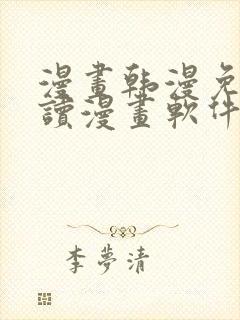 漫畫韩漫免
讀漫畫軟件
李夢清